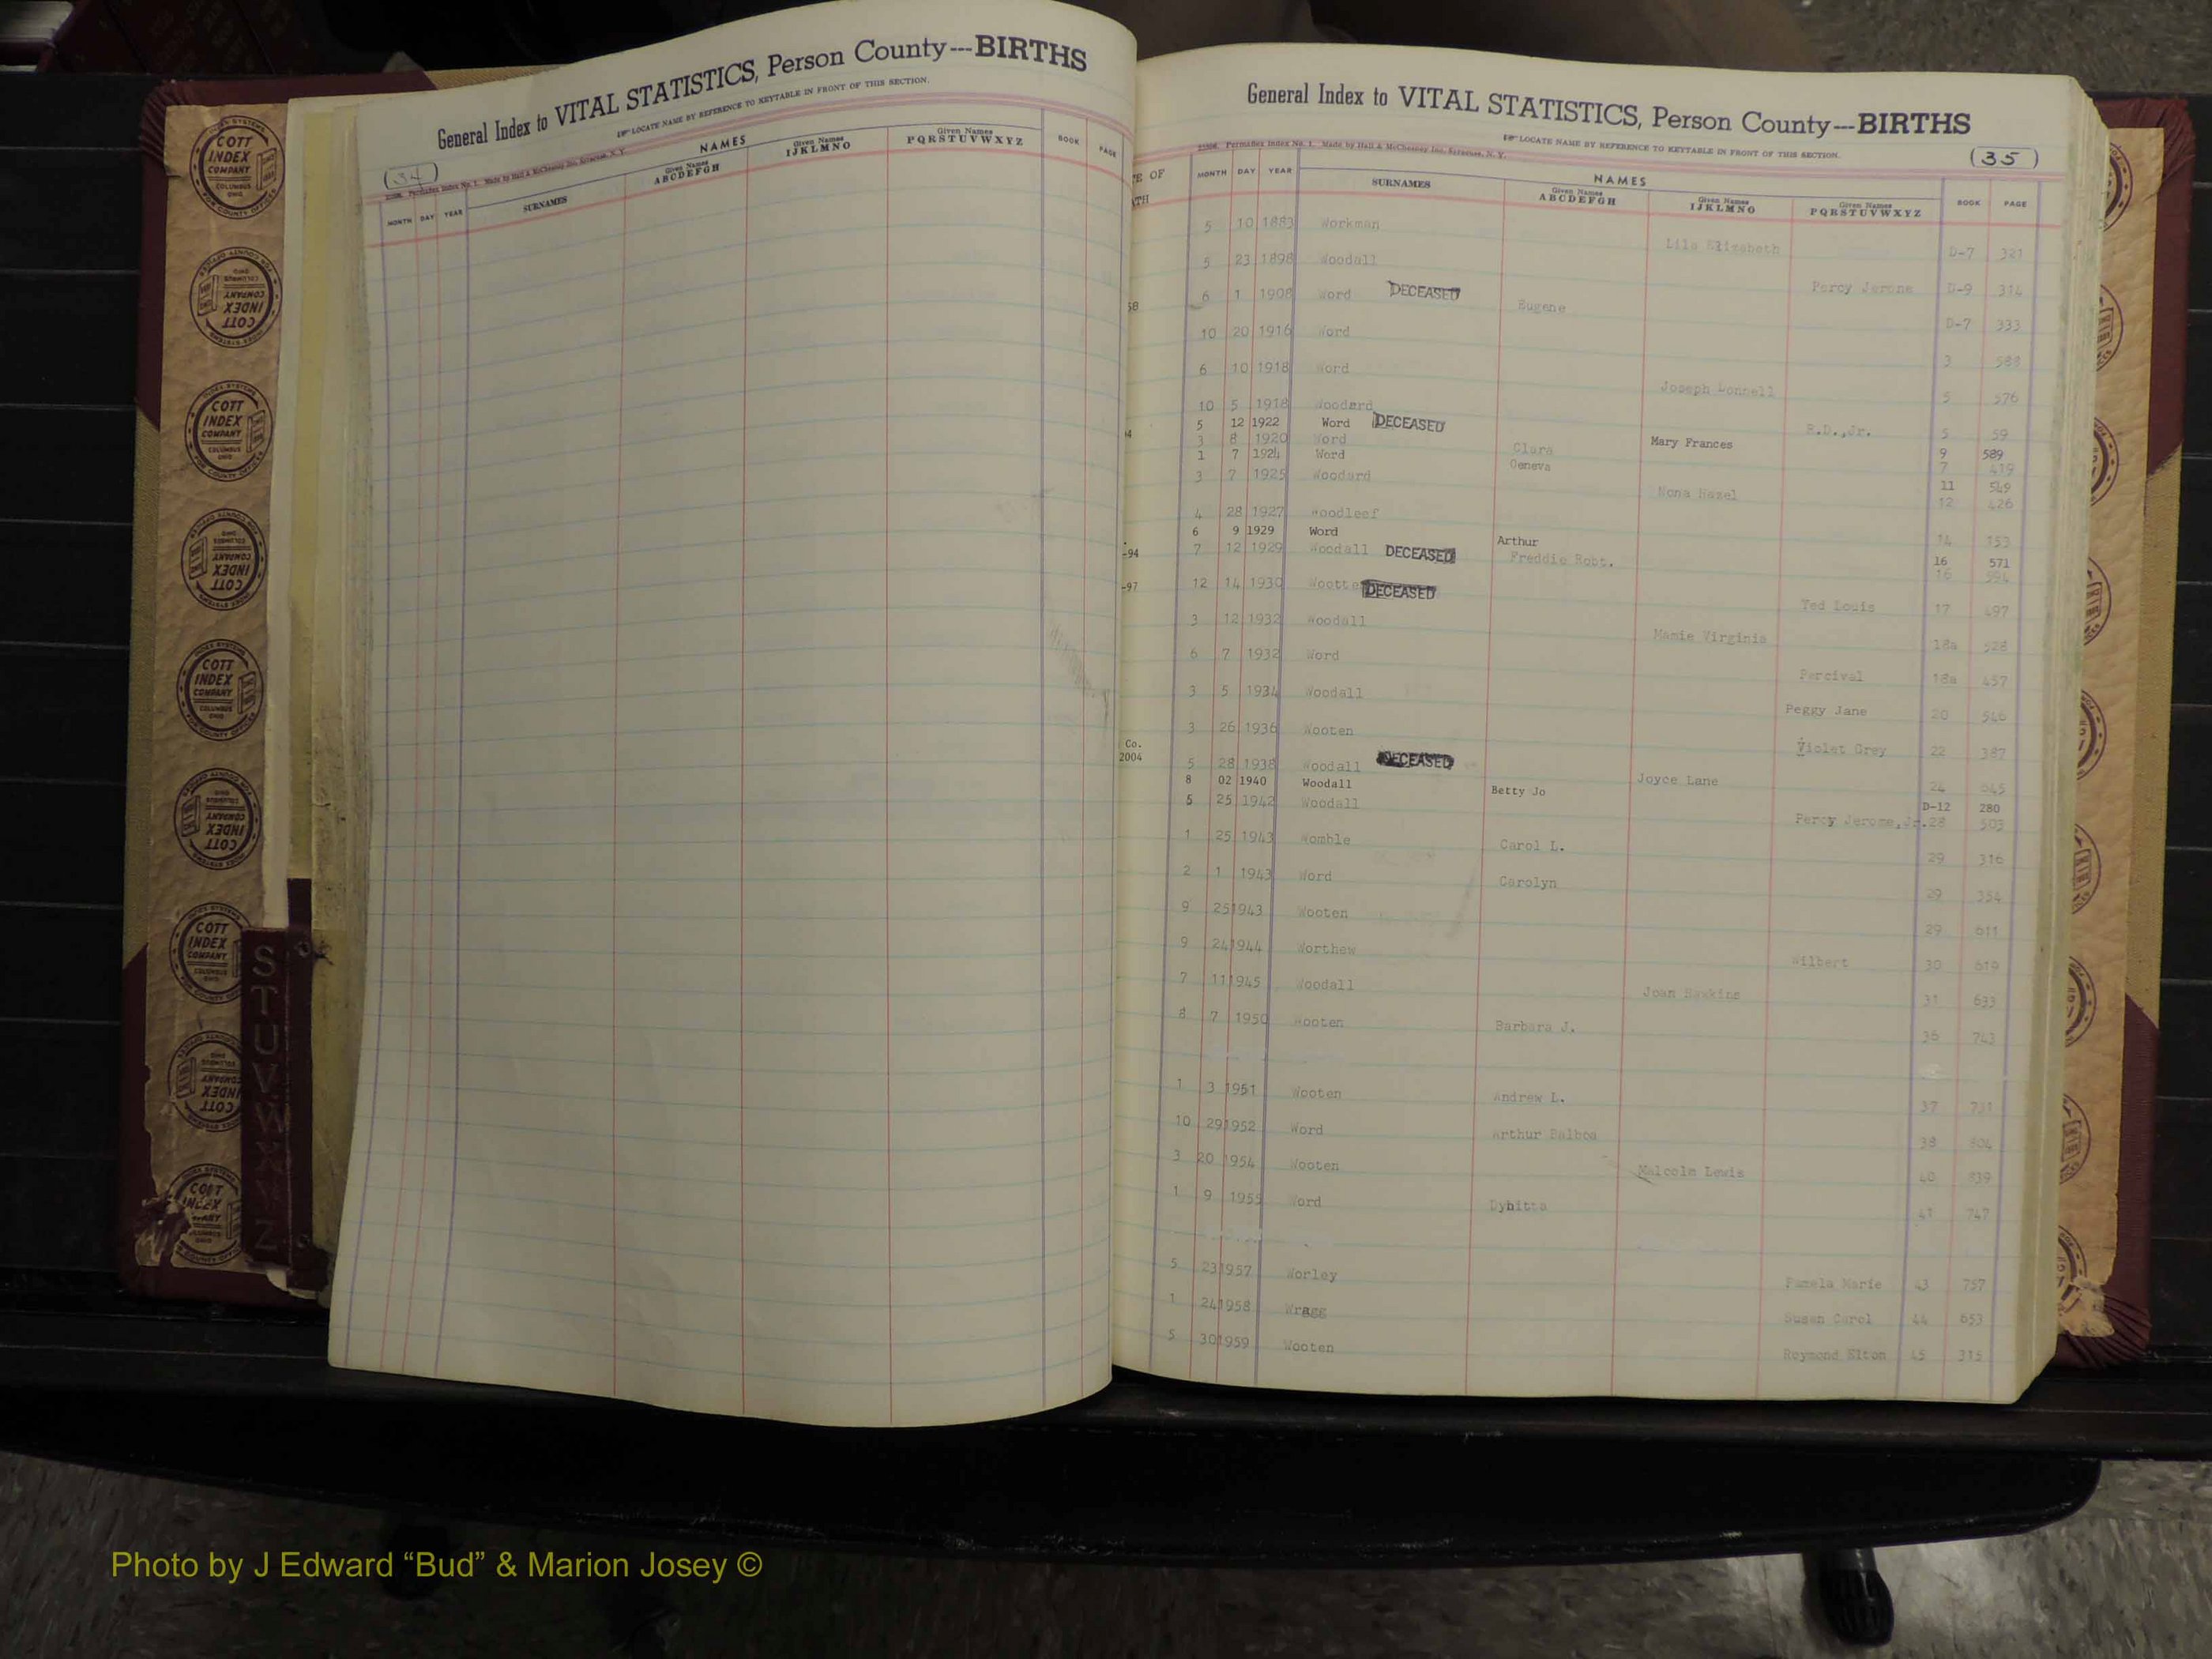 General Index to VITAL STATISTICS, Person County---BIRTHS
LOCATE NAME BY REFERENCE TO KEYTABLE IN FRONT OF THIS SECTION.
(34)
NAMES
MONTH DAY YEAR SURNAMES Given Names ABCDEFGH Given Names IJKLMNO Given Names PQRSTUVWXYZ BOOK PAGE
General Index to VITAL STATISTICS, Person County---BIRTHS
LOCATE NAME BY REFERENCE TO KEYTABLE IN FRONT OF THIS SECTION.
Permaflex Index No. 1. Made by Hall & McChesney Inc. Syracuse, N. Y.
(35)
NAMES
MONTH DAY YEAR SURNAMES Given Names ABCDEFGH Given Names IJKLMNO Given Names PQRSTUVWXYZ BOOK PAGE
5 10 1883 Workman Lila Elizabeth D-7 321
5 23 1898 Woodall Percy Jerome D-9 314
6 1 1908 Word DECEASED Eugene D-7 333
10 20 1916 Word 3
6 10 1918 Word Joseph 5 576
10 5 1918 Woodard R.D.,Jr. 5 59
5 12 1922 Word DECEASED Mary Frances 9 589
3 8 1920 Word Clara 7 419
1 7 1924 Word Geneva 11 549
3 7 1925 Woodard Nona Hazel 12 426
4 28 1927 Woodleef 14 153
6 9 1929 Word Arthur 16 571
7 12 1929 Woodall DECEASED Freddie Robt. 16
12 14 1930 DECEASED Ted Louis 17 497
3 12 1932 Woodall Mamie Virginia 18a 528
6 7 1932 Word Percival 18a 457
3 5 1934 Woodall Peggy Jane 20 546
3 26 1936 Wooten Violet Grey 22 387
5 28 1938 Woodall DECEASED Joyce Lane 24
8 02 1940 Woodall Betty Jo D-12 280
5 25 1942 Woodall Percy Jerome, Jr. 28 503
1 25 1943 Womble Carol L. 29 316
2 1 1943 Word Carolyn 29 354
9 25 1943 Wooten 29 611
9 24 1944 Worthew Wilbert 30 619
7 11 1945 Woodall Joan Hawkins 31 633
8 7 1950 Wooten Barbara J. 36 743
1 3 1951 Wooten Andrew L. 37 731
10 29 1952 Word Arthur Balboa 38 804
3 20 1954 Wooten Malcolm Lewis 40 839
1 9 1955 Word Dyhitta 41 747
5 23 1957 Worley Pamela Marie 43 757
1 24 1958 Wragg Susan Carol 44 653
5 30 1959 Wooten Raymond Elton 45 315
58
-94
-97
Co.
2004
COTT INDEX COMPANY COLUMBUS OHIO
INDEX SYSTEMS FOR COUNTY OFFICES
S
T
U
V
W
X
Y
Z
Photo by J Edward “Bud” & Marion Josey ©